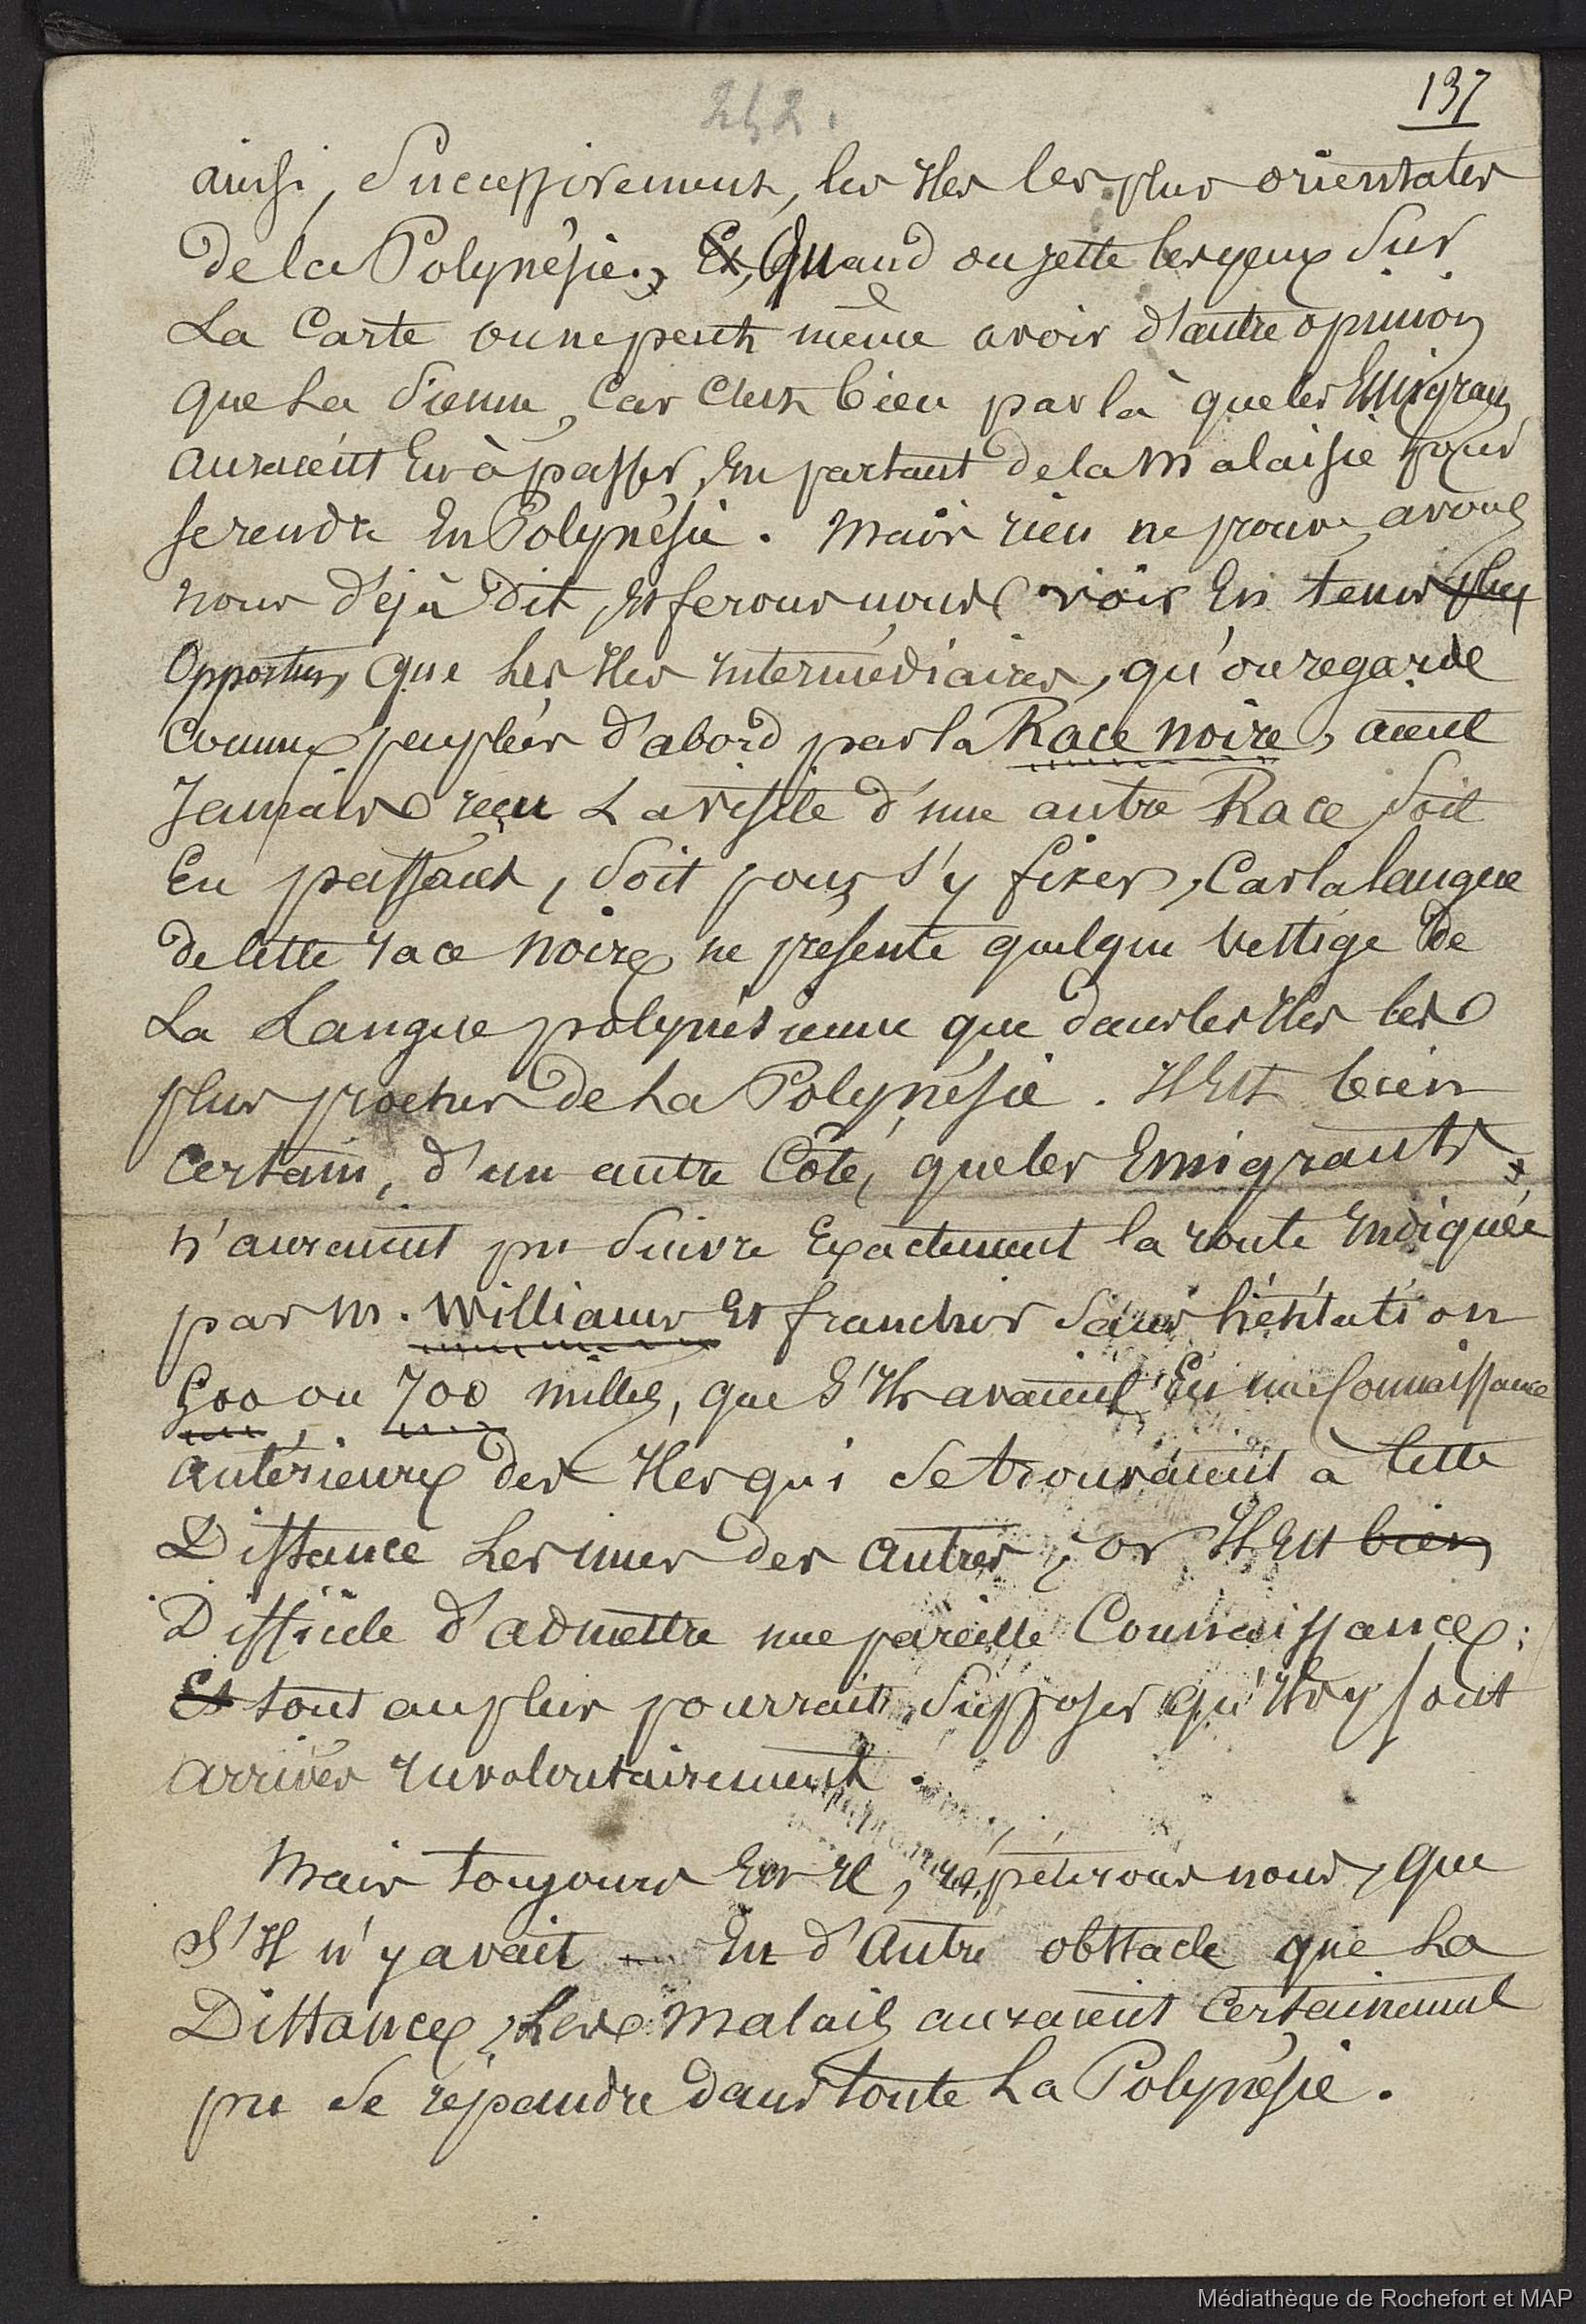 137
242.
ainsi, Successivement, les Iles les plus orientales
de la Polynésie. Et, Quand on jette les yeux Sur
La Carte on ne peut même avoir d'autre opinion
que La Sienne, Car C'est bien par là que les Emigrans
auraient Eu à passer, En partant de la Malaisie pour
se rendre En Polynésie. Mais rien ne prouve, avons
nous déjà dit, Et ferons nous voir En tems plus
Opportun, que Les Iles Intermédiaires, qu'on regarde
Comme peuplées d'abord par la Race noire, aient
Jamais reçu La visite d'une autre Race Soit
En passant, Soit pour s'y fixer, Car la langue
de Cette race noire ne présente quelque Vestige de
La Langue polynésienne que dans les Iles les
plus proches de La Polynésie. Il Est bien
Certain, d'un autre Coté, que les Emigrants
n'auraient pu Suivre Exactement la route Indiquée
par M. Williams Et franchir Sans hésitation
500 ou 700 milles, que S'Ils avaient Eu une Connaissance
antérieure des Iles qui Se trouvaient à Cette
Distance Les unes des autres, or Il Est bien
Difficile d'admettre une pareille Connaissance;
Et tout au plus pourrait, Supposer qu'Ils y sont
arrivés Involontairement.
Mais toujours Est Il, répéterons nous, que
S'Il n'y avait Eu d'Autre obstacle que La
Distance, Les Malais auraient Certainement
pu Se répandre dans toute La Polynésie.
Médiathèque de Rochefort et MAP